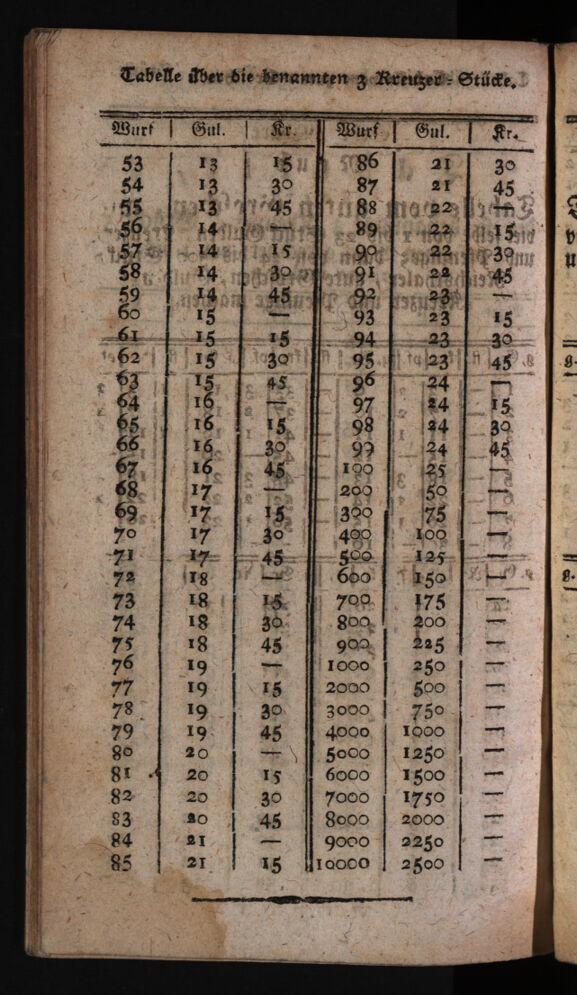 Tabelle über die benannten 3 Kreuzer-Stücke.
Wurf | Gul. | Kr. Wurf | Gul. | Kr.
53 13 15 86 21 30
54 13 30 87 21 45
55 13 45 88 22 —
56 14 — 89 22 15
57 14 15 90 22 30
58 14 30 91 22 45
59 14 45 92 23 —
60 15 — 93 23 15
61 15 15 94 23 30
62 15 30 95 23 45
63 15 45 96 24 —
64 16 — 97 24 15
65 16 15 98 24 30
66 16 30 99 24 45
67 16 45 100 25 —
68 17 — 200 50 —
69 17 15 300 75 —
70 17 30 400 100 —
71 17 45 500 125 —
72 18 — 600 150 —
73 18 15 700 175 —
74 18 30 800 200 —
75 18 45 900 225 —
76 19 — 1000 250 —
77 19 15 2000 500 —
78 19 30 3000 750 —
79 19 45 4000 1000 —
80 20 — 5000 1250 —
81 20 15 6000 1500 —
82 20 30 7000 1750 —
83 20 45 8000 2000 —
84 21 — 9000 2250 —
85 21 15 10000 2500 —